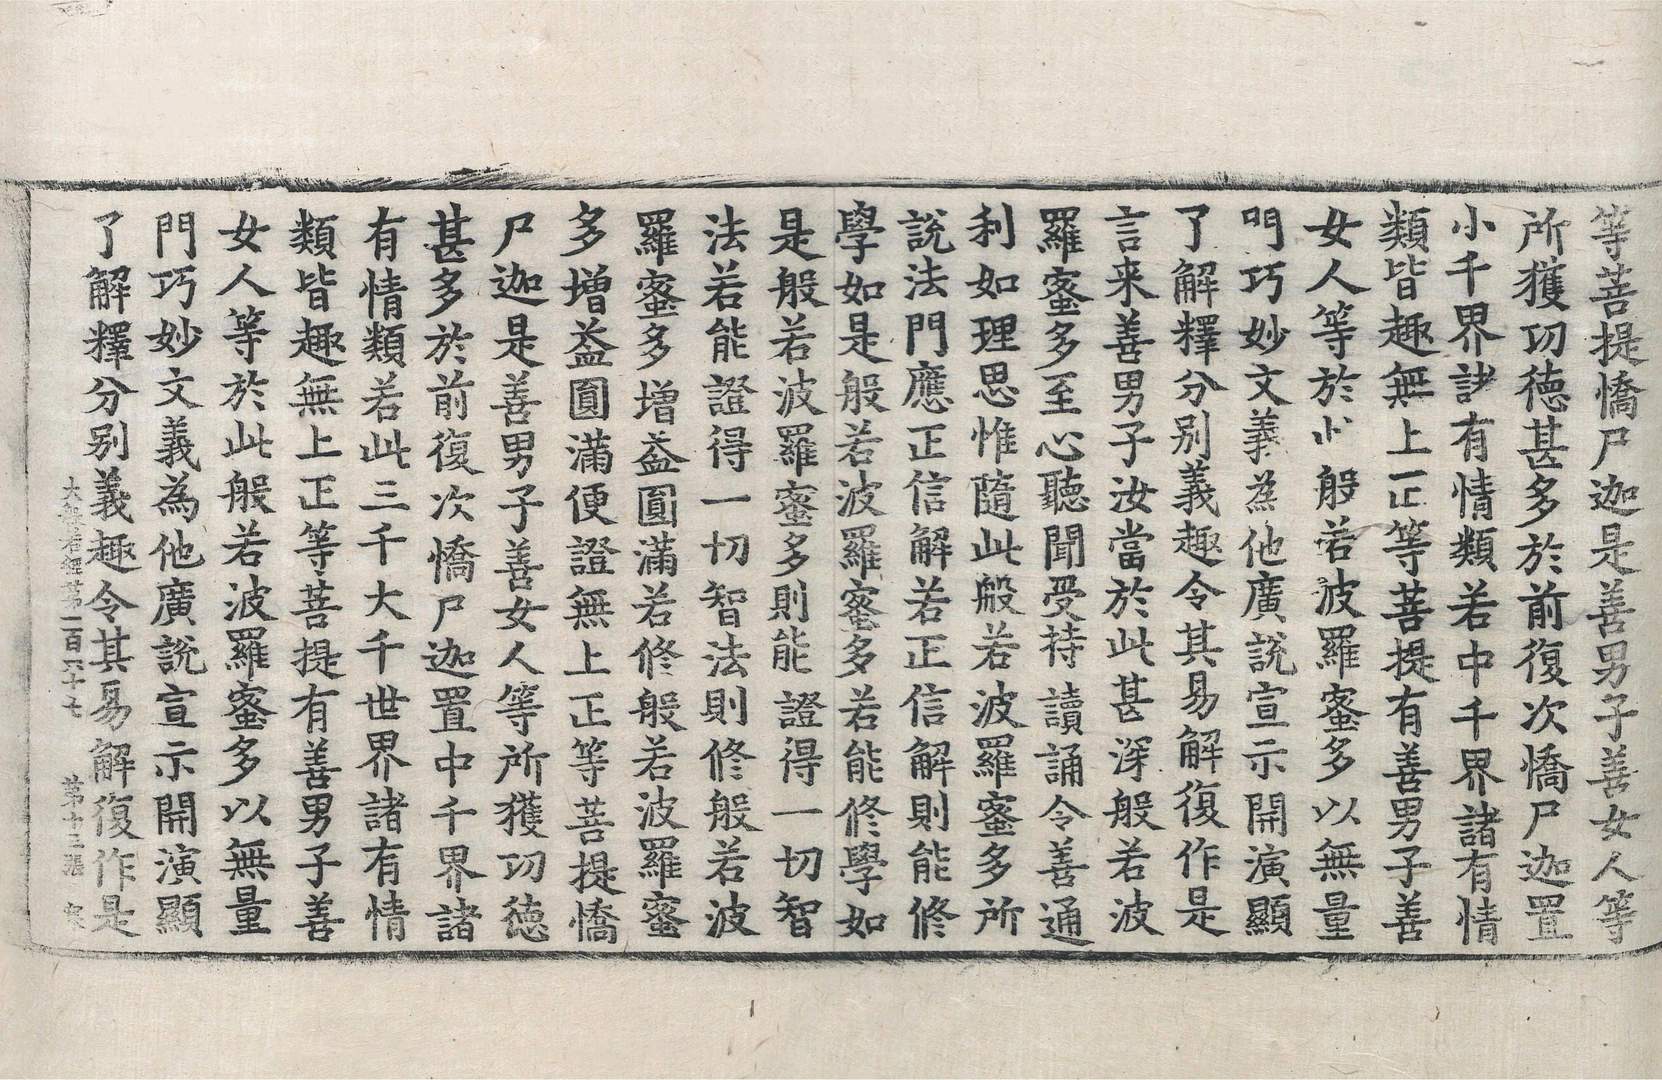 等菩提憍尸迦是善男子善女人等
所獲功德甚多於前復次憍尸迦置
小千界諸有情類若中千界諸有情
類皆趣無上正等菩提有善男子善
女人等於此般若波羅蜜多以無量
門巧妙文義為他廣說宣示開演顯
了解釋分別義趣令其易解復作是
言来善男子汝當於此甚深般若波
羅蜜多至心聽聞受持讀誦令善通
利如理思惟隨此般若波羅蜜多所
說法門應正信解若正信解則能修
學如是般若波羅蜜多若能修學如
是般若波羅蜜多則能證得一切智
法若能證得一切智法則修般若波
羅蜜多增益圓滿若修般若波羅蜜
多增益圓滿便證無上正等菩提憍
尸迦是善男子善女人等所獲功德
甚多於前復次憍尸迦置中千界諸
有情類若此三千大千世界諸有情
類皆趣無上正等菩提有善男子善
女人等於此般若波羅蜜多以無量
門巧妙文義為他廣說宣示開演顯
了解釋分別義趣令其易解復作是
大般若經第一百六十七 第十三張